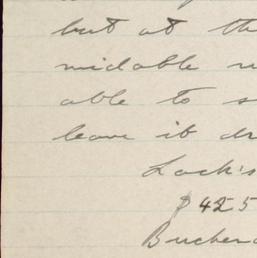 but at the
midable
able to s
leave it dr
Lock's
$425
Buchen